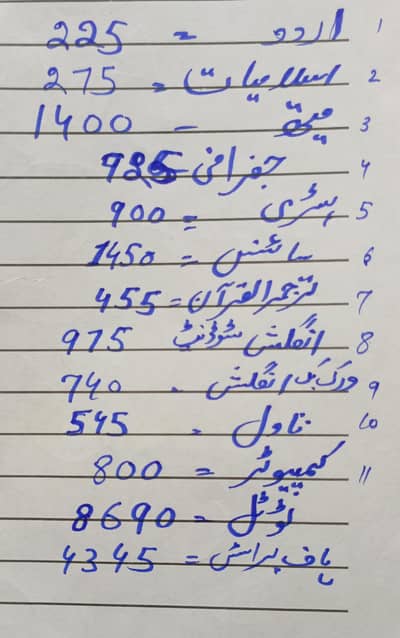 1 اردو = 225
2 اسلامیات = 275
3 میتھ - 1400
4 جغرافی = 925
5 ہسٹری = 900
6 سائنس = 1450
7 ترجمہ القرآن = 455
8 انگلش سٹوڈنٹ 975
9 ورک بک انگلش - 740
10 ناول - 545
11 کمپیوٹر = 800
ٹوٹل = 8690
ہاف پرائس = 4345